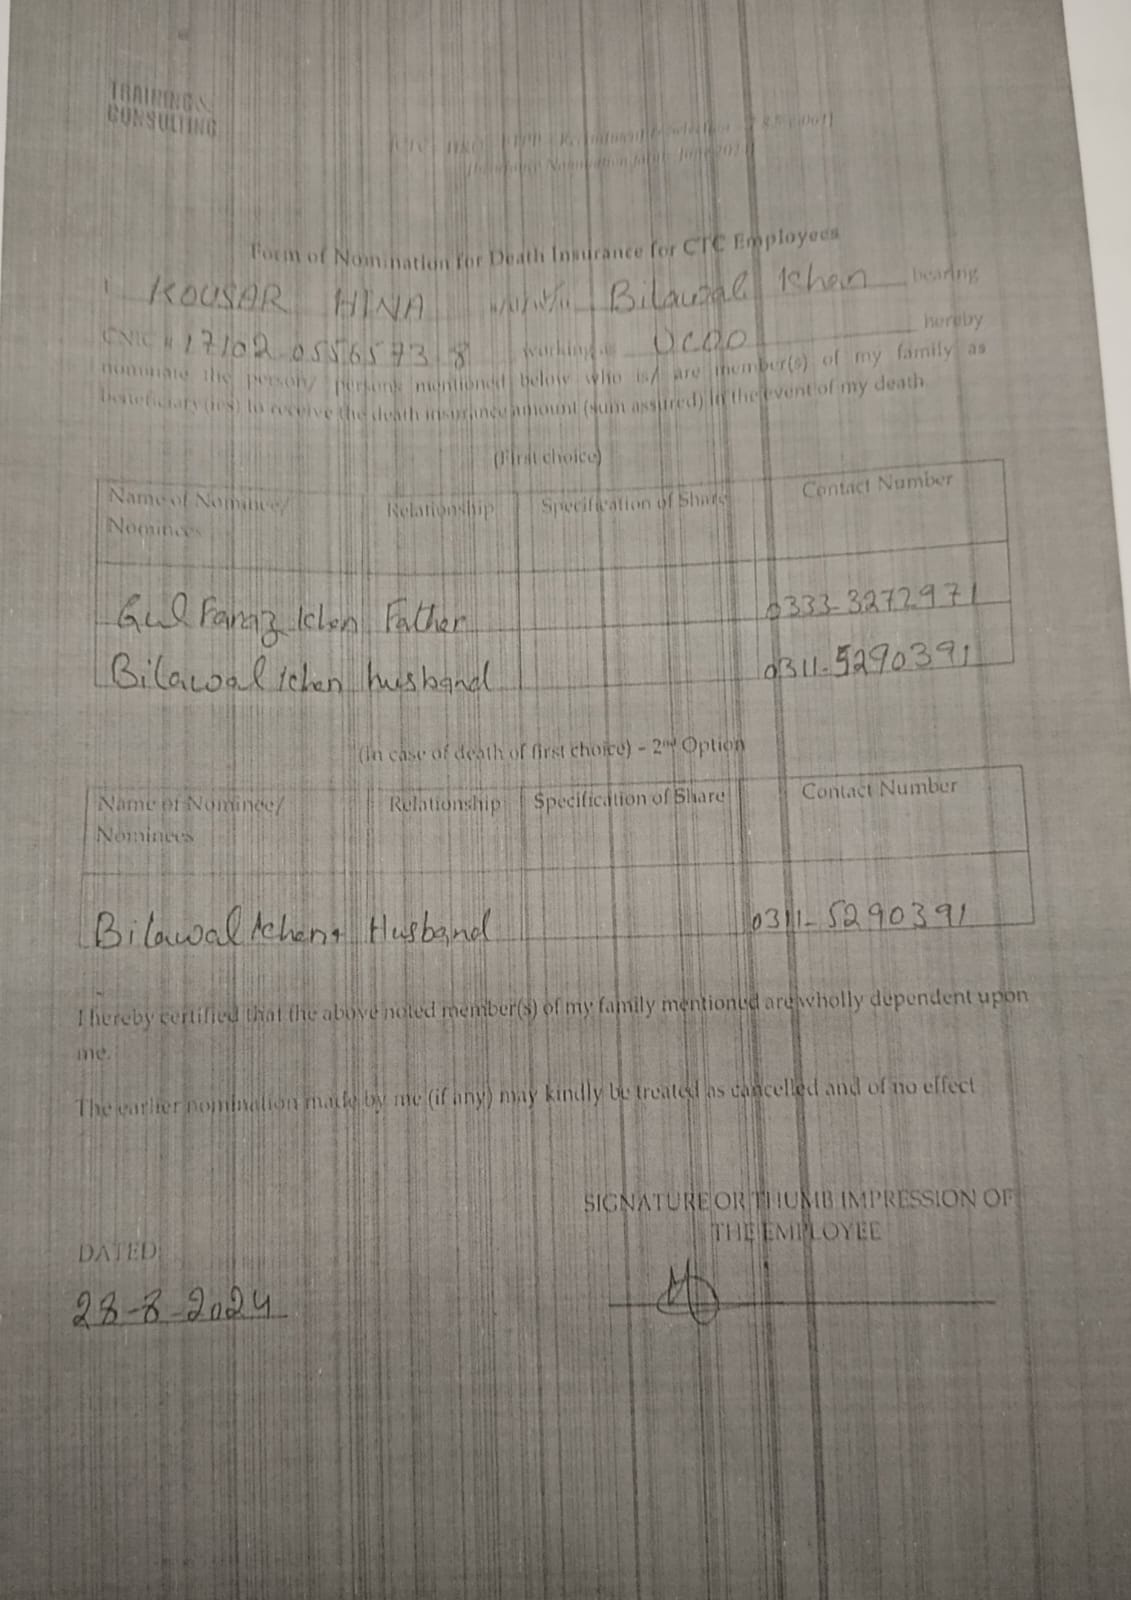 TRAINING &
CONSULTING
Form of Nomination for Death Insurance for CTC Employees
I KOUSAR HINA Bilawal Khan bearing
CNIC # 17102 0556573 8 working as UCOO hereby
nominate the person/ persons mentioned below who is/ are member(s) of my family as
beneficiary(ies) to receive the death insurance amount (sum assured) in the event of my death
(First choice)
Name of Nominee/ Relationship Specification of Share Contact Number
Nominees
Gul Faraz Khan Father 0333-3272971
Bilawal Khan husband 0311-5290391
(In case of death of first choice) - 2nd Option
Name of Nominee/ Relationship Specification of Share Contact Number
Nominees
Bilawal Khan Husband 0311-5290391
I hereby certified that the above noted member(s) of my family mentioned are wholly dependent upon
me.
The earlier nomination made by me (if any) may kindly be treated as cancelled and of no effect
SIGNATURE OR THUMB IMPRESSION OF
THE EMPLOYEE
DATED
28-8-2024